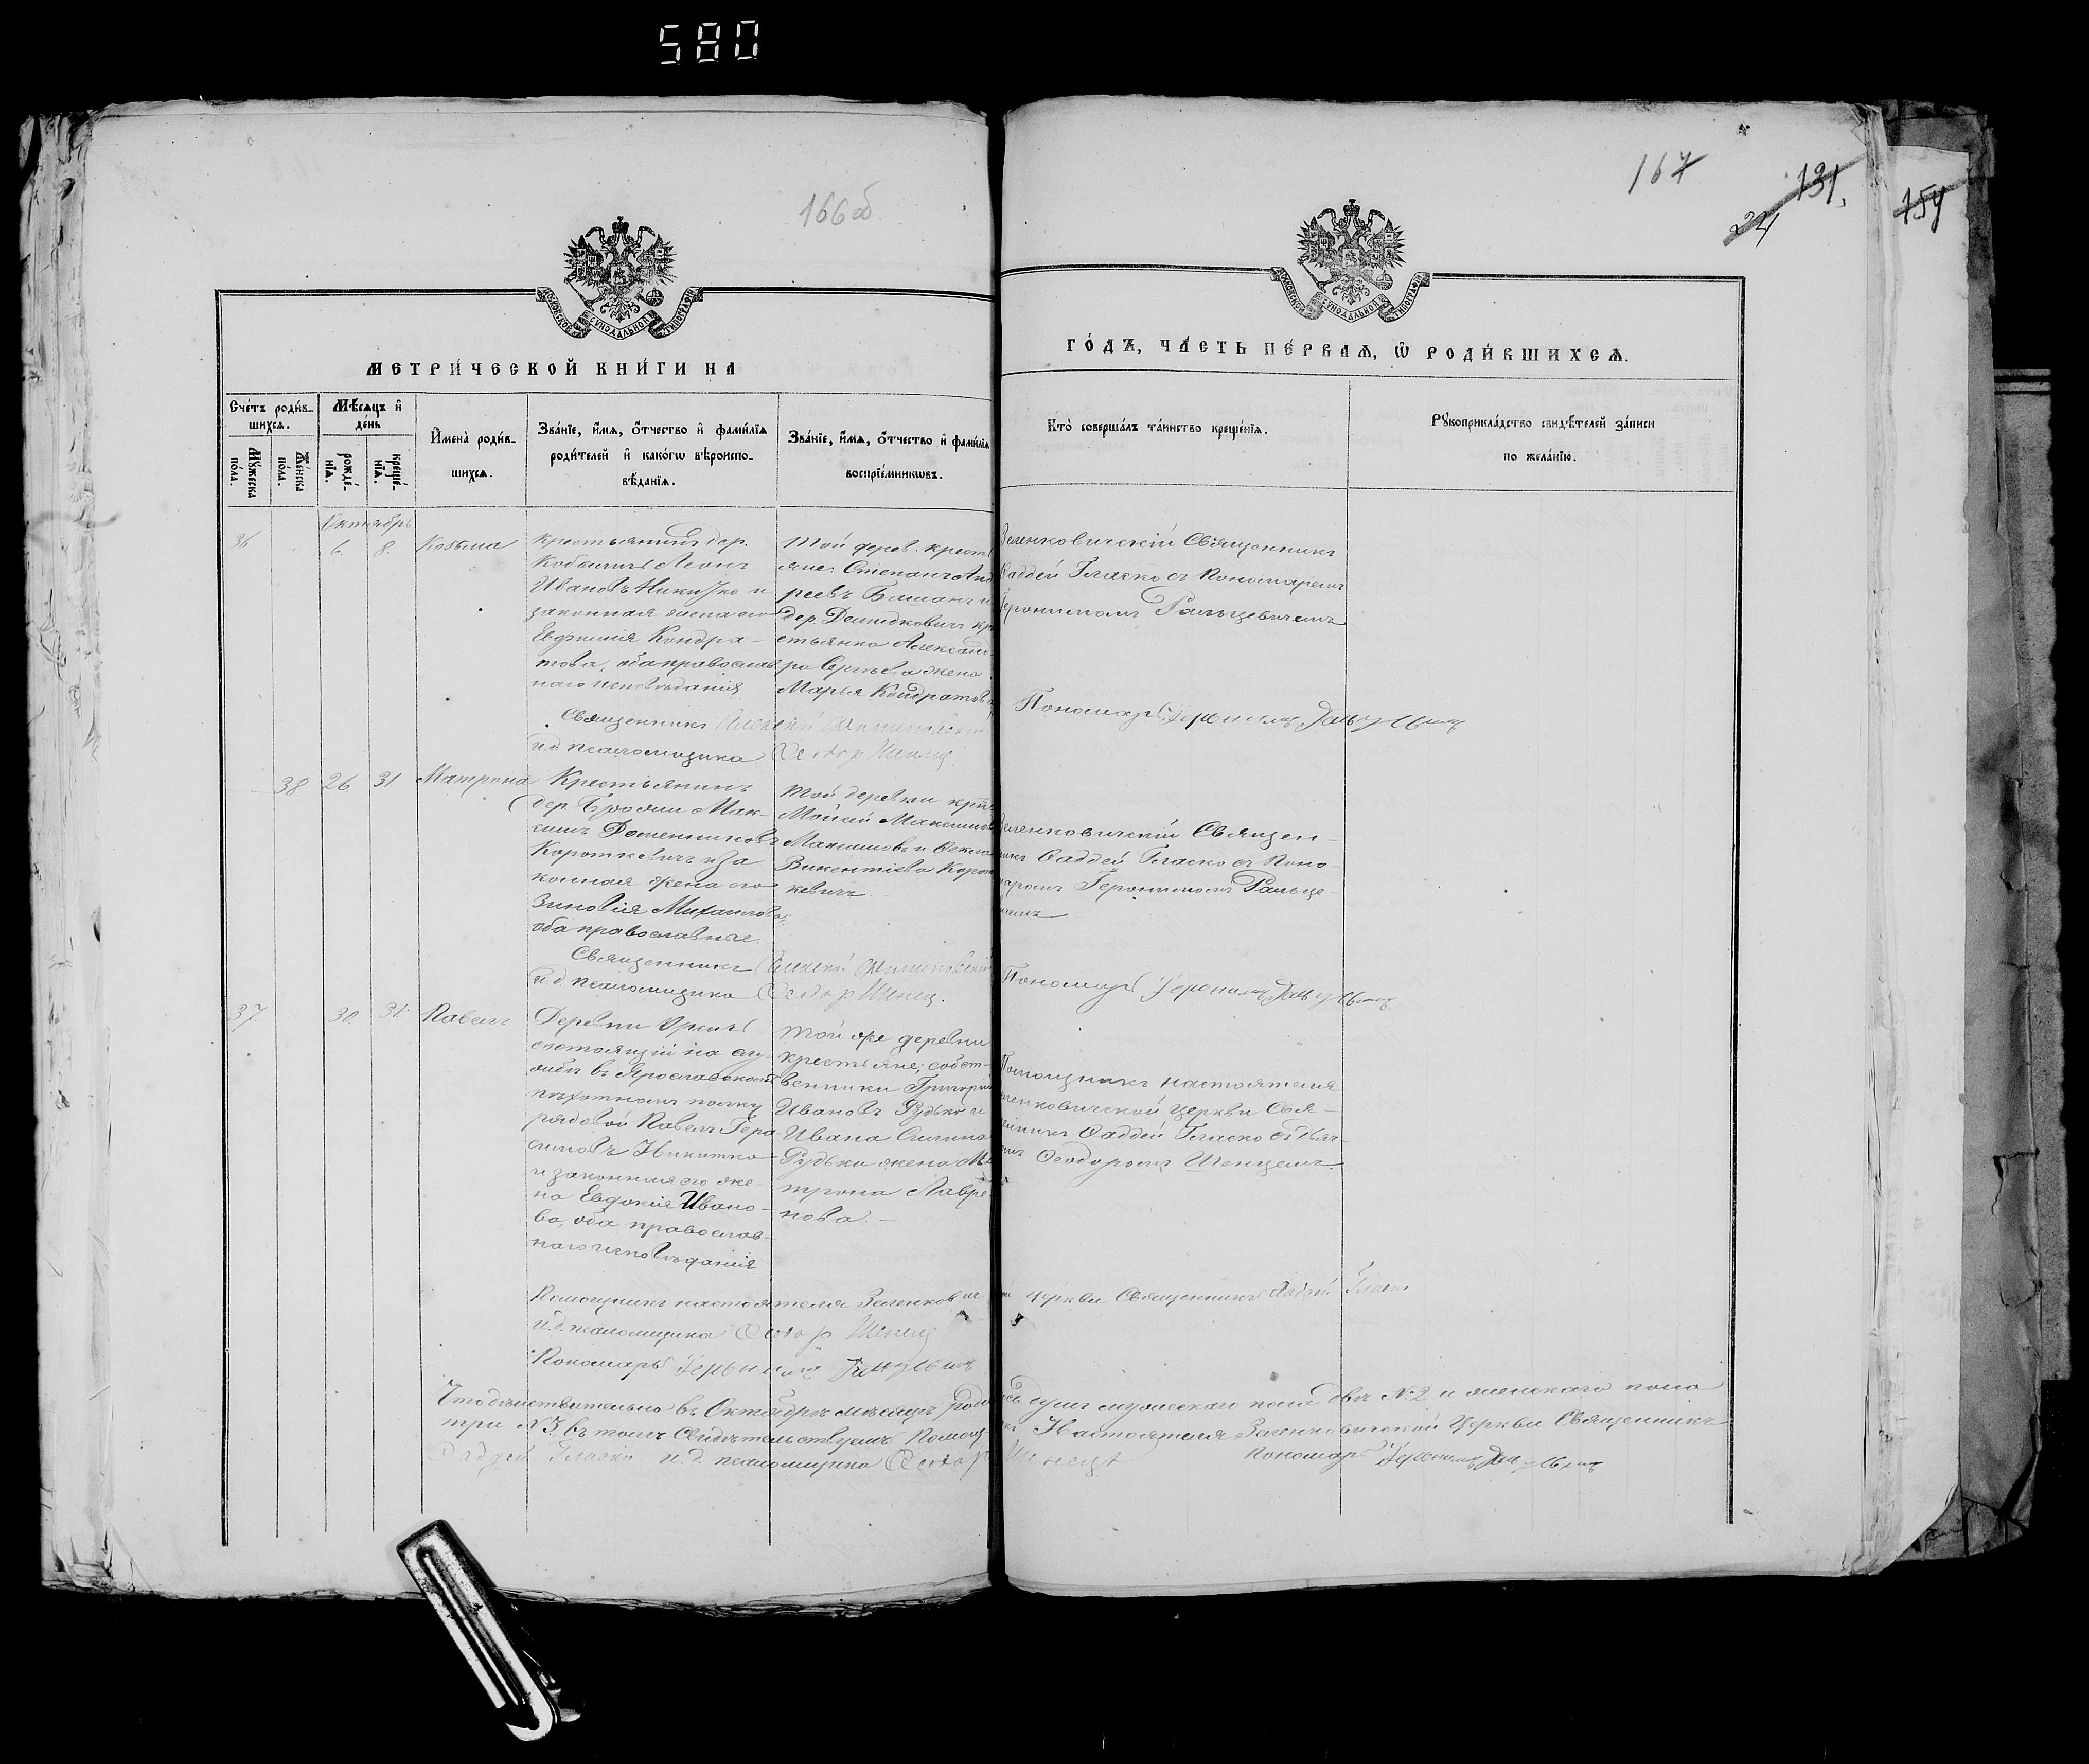 580
166об
167
131.
24
154
МОСКОВСКОЙ СѴНОДАЛЬНОЙ ТИПОГРАФІИ
МОСКОВСКОЙ СѴНОДАЛЬНОЙ ТИПОГРАФІИ
МЕТРИ́ЧЕСКОЙ КНИ́ГИ НА
ГО́ДЪ, ЧА́СТЬ ПЕ́РВАѦ, Ѡ РОДИ́ВШИХСѦ.
Сче́тъ роди́в-
шихсѧ.
Мѣ́сѧцъ и҆
де́нь
Мꙋ́жеска
по́ла.
Же́нска
по́ла.
рожде́-
нїѧ.
креще́-
нїѧ.
И҆мена̀ роди́в-
шихсѧ.
Зва́нїе, и҆́мѧ, ѻ҆́тчество и҆ фами́лїѧ
роди́телей и҆ како́гѡ вѣроиспо-
вѣ́данїѧ.
Зва́нїе, и҆́мѧ, ѻ҆́тчество и҆ фами́лїѧ
воспрїе́мникѡвъ.
Кто̀ соверша́лъ та́инство креще́нїѧ.
Рꙋкоприкла́дство свидѣ́телей за́писи
по жела́нїю.
Октябрь
36
6.
8.
Козьма
Крестьянинъ дер.
Кобыличъ Леонъ
Ивановъ Никитко и
законная жена его
Евфимія Кондра-
това, оба православ
наго исповѣданія
Той дерев. крестъ
яне: Степанъ Анд
реевъ Башанъ и
дер. Демидковичъ кре
стьянка Александ
ра Сергѣева жена
Марья Кондратова
Зеленковичскій Священникъ
Фаддей Гласко съ Пономаремъ
Іеронимомъ Ральцевичемъ
Священникъ Алексій
и.д. псаломщика Ѳеодоръ Шенец
Пономарь Іеронимъ Ральцевичъ
38.
26
31.
Матрона
Крестьянинъ
дер. Брожи Мак-
симъ Доментиновъ
Короткевичъ и за
конная жена его
Зиновія Михаилова,
оба православные.
Той деревни крест
Мойсей Максимов
Максимовъ и Фекла
Викентіева Корот
кевичъ
Зеленковичскій Священ-
никъ Фаддей Гласко съ Поно-
маромъ Іеронимомъ Ральце-
вичемъ
Священникъ Алексій
и.д. псаломщика Ѳеодоръ Шенец.
Пономарь Іеронимъ Ральцевичъ
37.
30
31.
Павелъ
Деревни Оркичъ
состоящій на слу-
жбѣ въ Ярославскомъ
пѣхотномъ полку
рядовой Павелъ Гера
симовъ Никитко
и законная его же-
на Евдокія Ивано-
ва, оба православ-
наго исповѣданія
Той же деревни
крестьяне, собст-
венники Григорій
Ивановъ Рудько и
Ивана Силина
Рудьки жена Ма
трона Лавре
нова. —
Помощникъ настоятеля
Зеленковичской Церкви Свя-
щенникъ Фаддей Гласко съ Дьяч-
комъ Ѳеодоромъ Шенецемъ
Помощникъ настоятеля Зеленковичской церкви Священникъ Фаддей Гласко
и.д. псаломщика Ѳеодоръ Шенец
Пономарь Іеронимъ Ральцевичъ
Что дѣйствительно въ Октябрѣ мѣсяцѣ родилось душъ мужескаго пола двѣ № 2 и женскаго пола
три № 3, въ томъ свидѣтельствуемъ Помощникъ Настоятеля Зеленковичской Церкви Священникъ
Фаддей Гласко и.д. псаломщика Ѳеодоръ Шенецъ Пономарь Іеронимъ Ральцевичъ